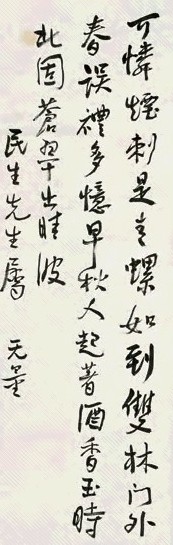 可憐煙刺是青螺如到雙林门外
春誤禮多憶早秋人起著酒香玉時
北固蒼翠出晴波
民生先生属 无量